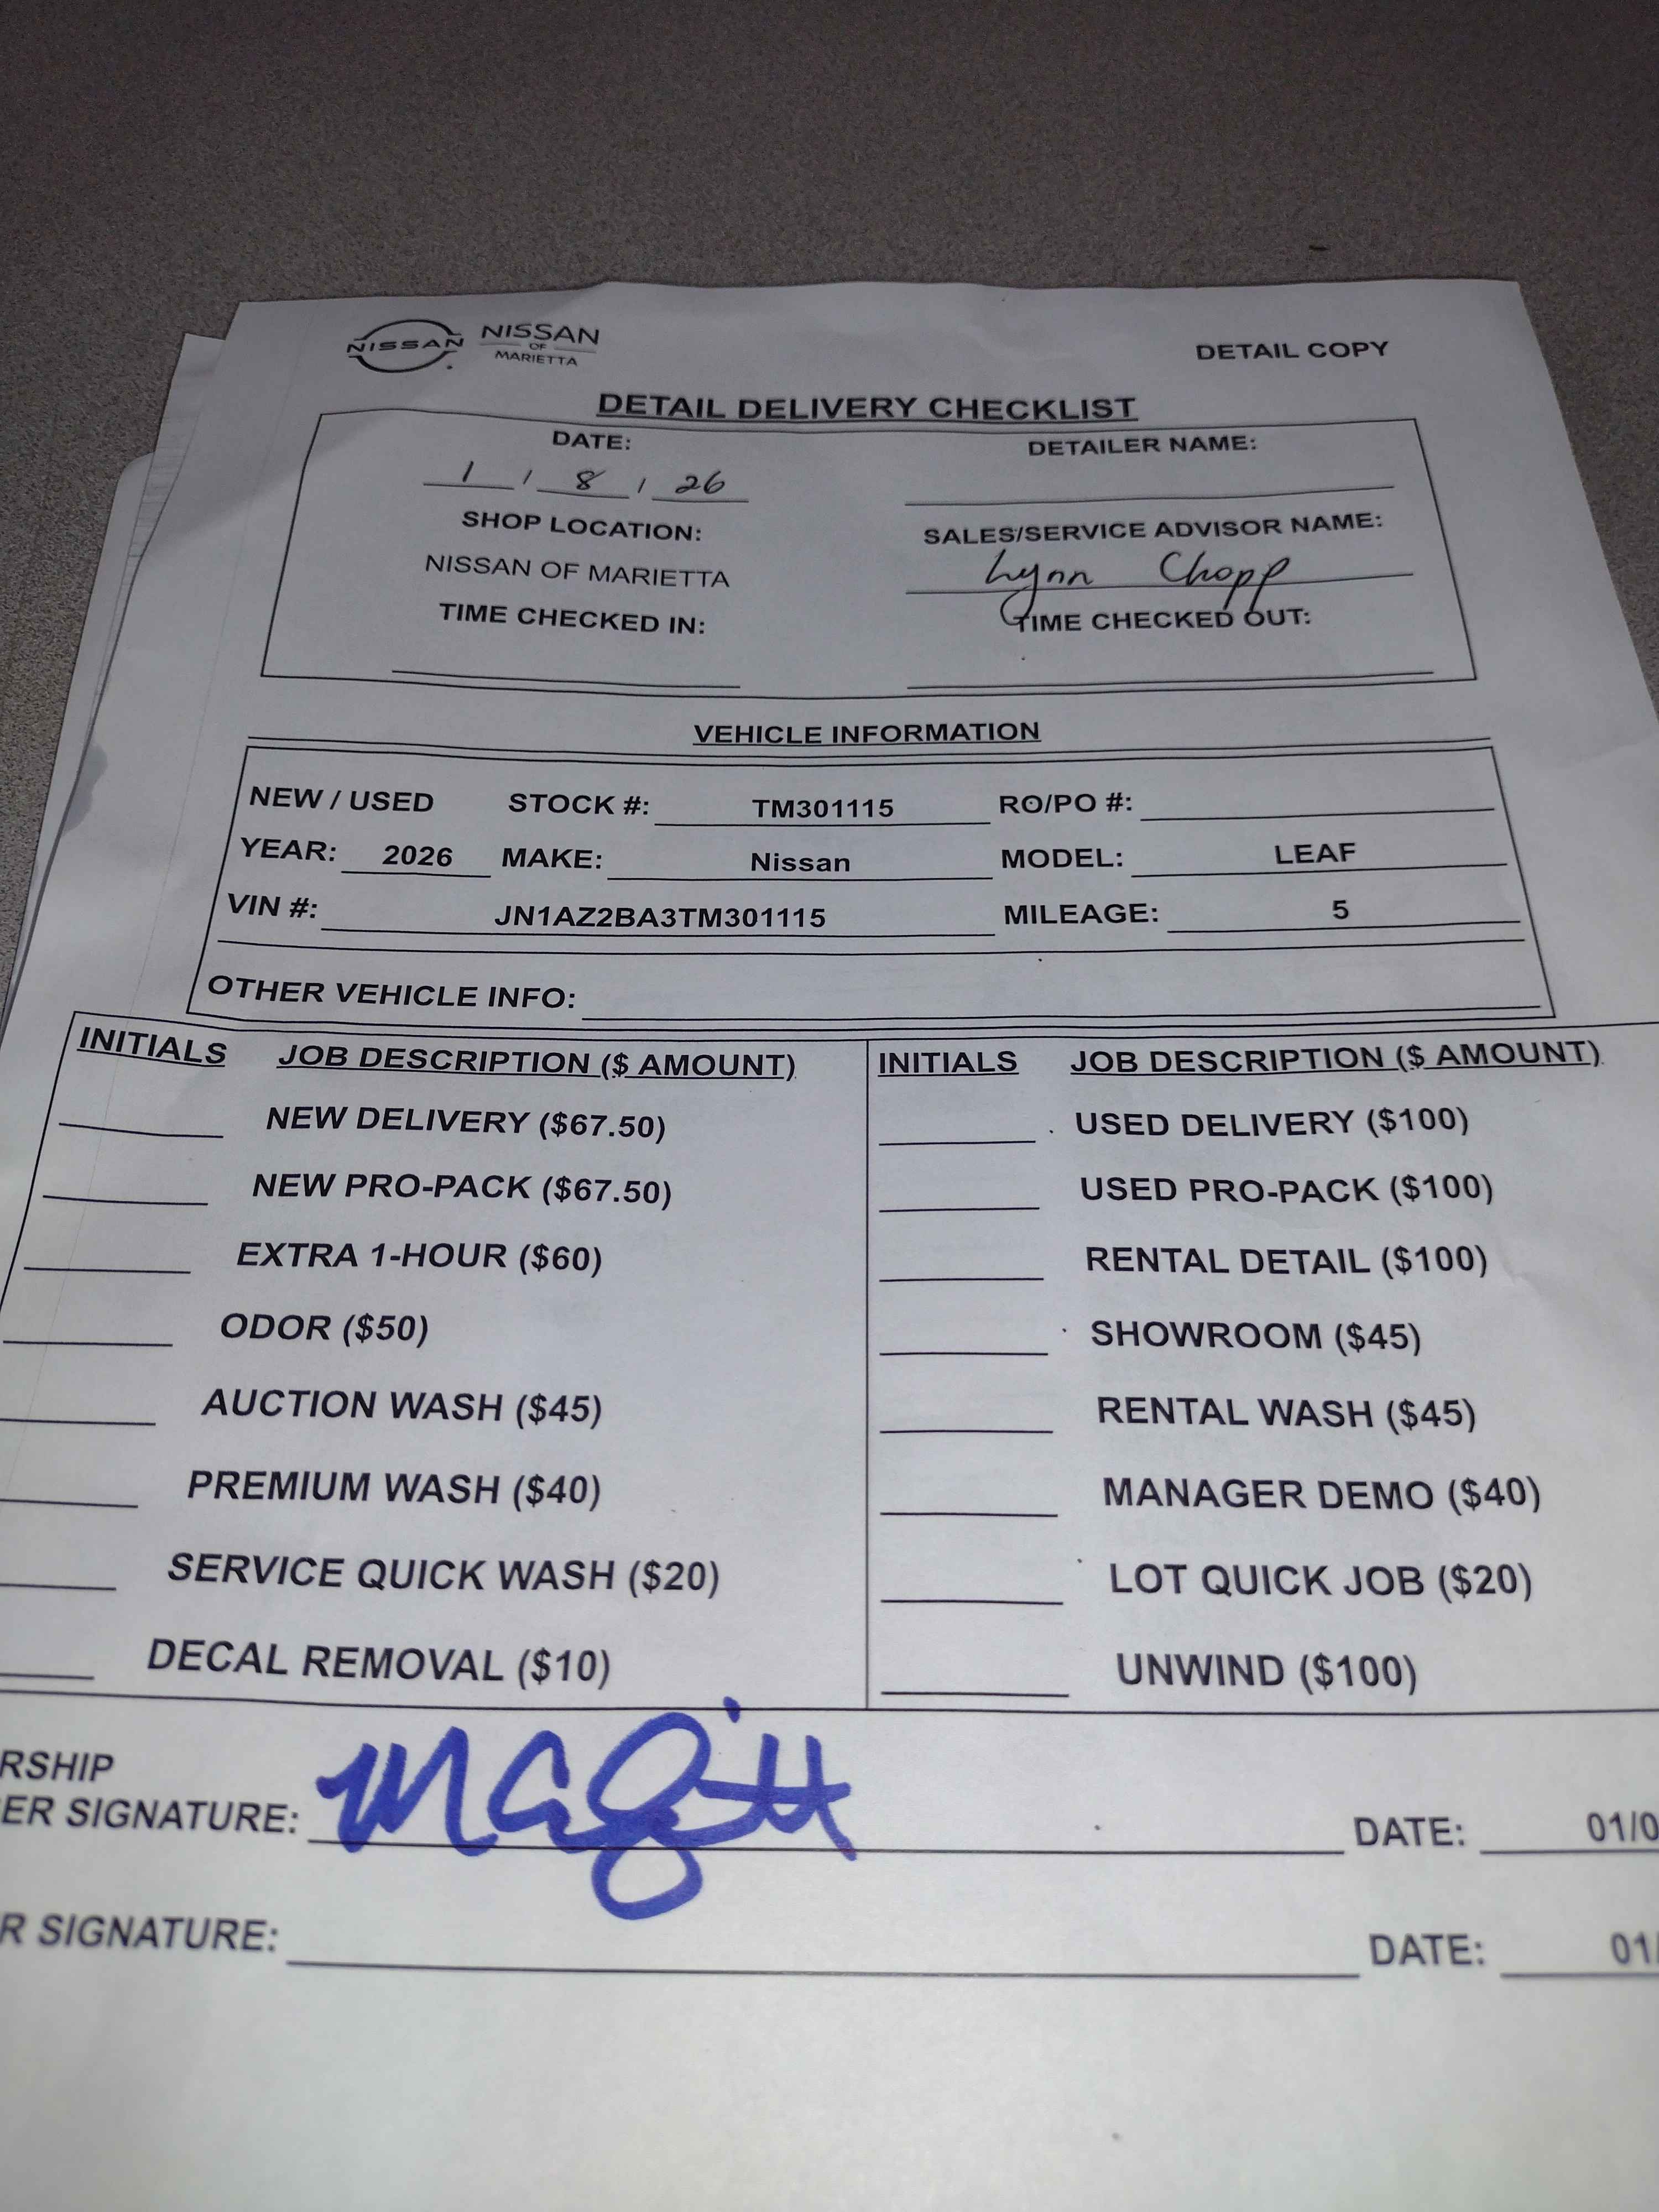 NISSAN NISSAN OF MARIETTA
DETAIL COPY
DETAIL DELIVERY CHECKLIST
DATE: DETAILER NAME:
1 / 8 / 26
SHOP LOCATION: SALES/SERVICE ADVISOR NAME:
NISSAN OF MARIETTA Lynn Chopp
TIME CHECKED IN: TIME CHECKED OUT:
VEHICLE INFORMATION
NEW / USED STOCK #: TM301115 RO/PO #:
YEAR: 2026 MAKE: Nissan MODEL: LEAF
VIN #: JN1AZ2BA3TM301115 MILEAGE: 5
OTHER VEHICLE INFO:
INITIALS JOB DESCRIPTION ($ AMOUNT) INITIALS JOB DESCRIPTION ($ AMOUNT)
NEW DELIVERY ($67.50) USED DELIVERY ($100)
NEW PRO-PACK ($67.50) USED PRO-PACK ($100)
EXTRA 1-HOUR ($60) RENTAL DETAIL ($100)
ODOR ($50) SHOWROOM ($45)
AUCTION WASH ($45) RENTAL WASH ($45)
PREMIUM WASH ($40) MANAGER DEMO ($40)
SERVICE QUICK WASH ($20) LOT QUICK JOB ($20)
DECAL REMOVAL ($10) UNWIND ($100)
RSHIP
ER SIGNATURE: DATE: 01/0
R SIGNATURE: DATE: 01/